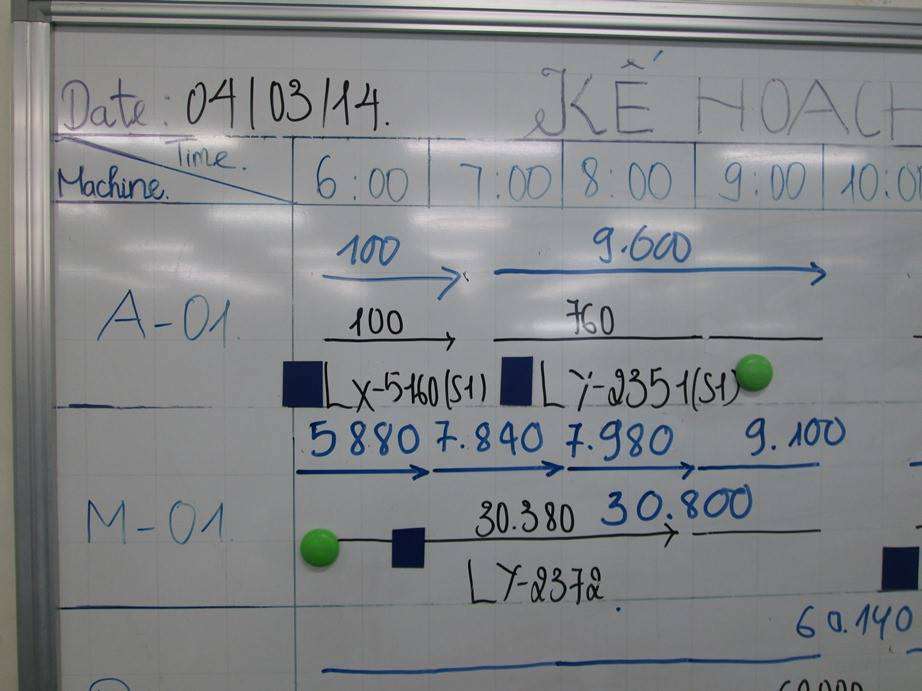 Date: 04/03/14.
KẾ HOACH
Time.
Machine.
6:00 7:00 8:00 9:00 10:0
100 9.600
A-01
100 760
LX-5160(S1) LY-2351(S1)
5880 7.840 7.980 9.100
M-01
30.380 30.800
LY-2372
60.140